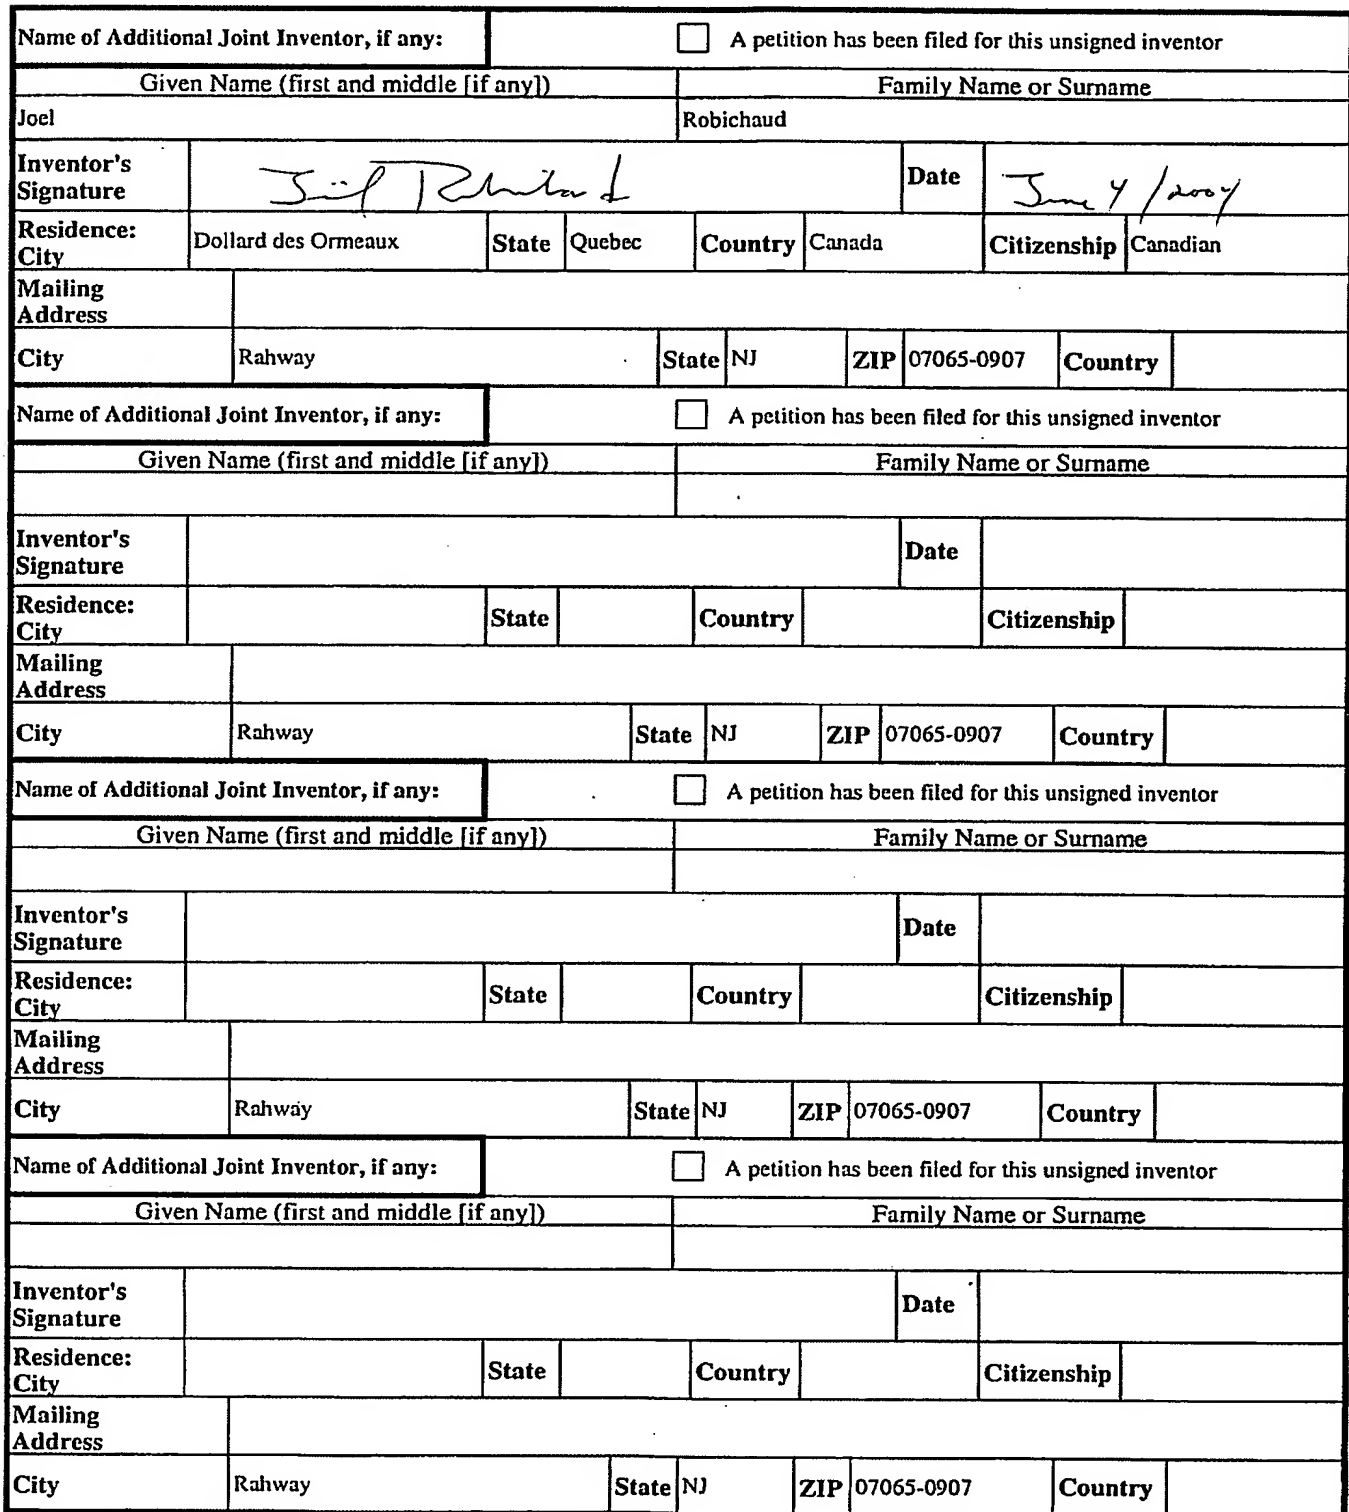 Name of Additional Joint Inventor, if any: A petition has been filed for this unsigned inventor
Given Name (first and middle [if any]) Family Name or Surname
Joel Robichaud
Inventor's Signature Joël Robichaud Date June 4/2004
Residence: City Dollard des Ormeaux State Quebec Country Canada Citizenship Canadian
Mailing Address
City Rahway State NJ ZIP 07065-0907 Country
Name of Additional Joint Inventor, if any: A petition has been filed for this unsigned inventor
Given Name (first and middle [if any]) Family Name or Surname
Inventor's Signature Date
Residence: City State Country Citizenship
Mailing Address
City Rahway State NJ ZIP 07065-0907 Country
Name of Additional Joint Inventor, if any: A petition has been filed for this unsigned inventor
Given Name (first and middle [if any]) Family Name or Surname
Inventor's Signature Date
Residence: City State Country Citizenship
Mailing Address
City Rahway State NJ ZIP 07065-0907 Country
Name of Additional Joint Inventor, if any: A petition has been filed for this unsigned inventor
Given Name (first and middle [if any]) Family Name or Surname
Inventor's Signature Date
Residence: City State Country Citizenship
Mailing Address
City Rahway State NJ ZIP 07065-0907 Country